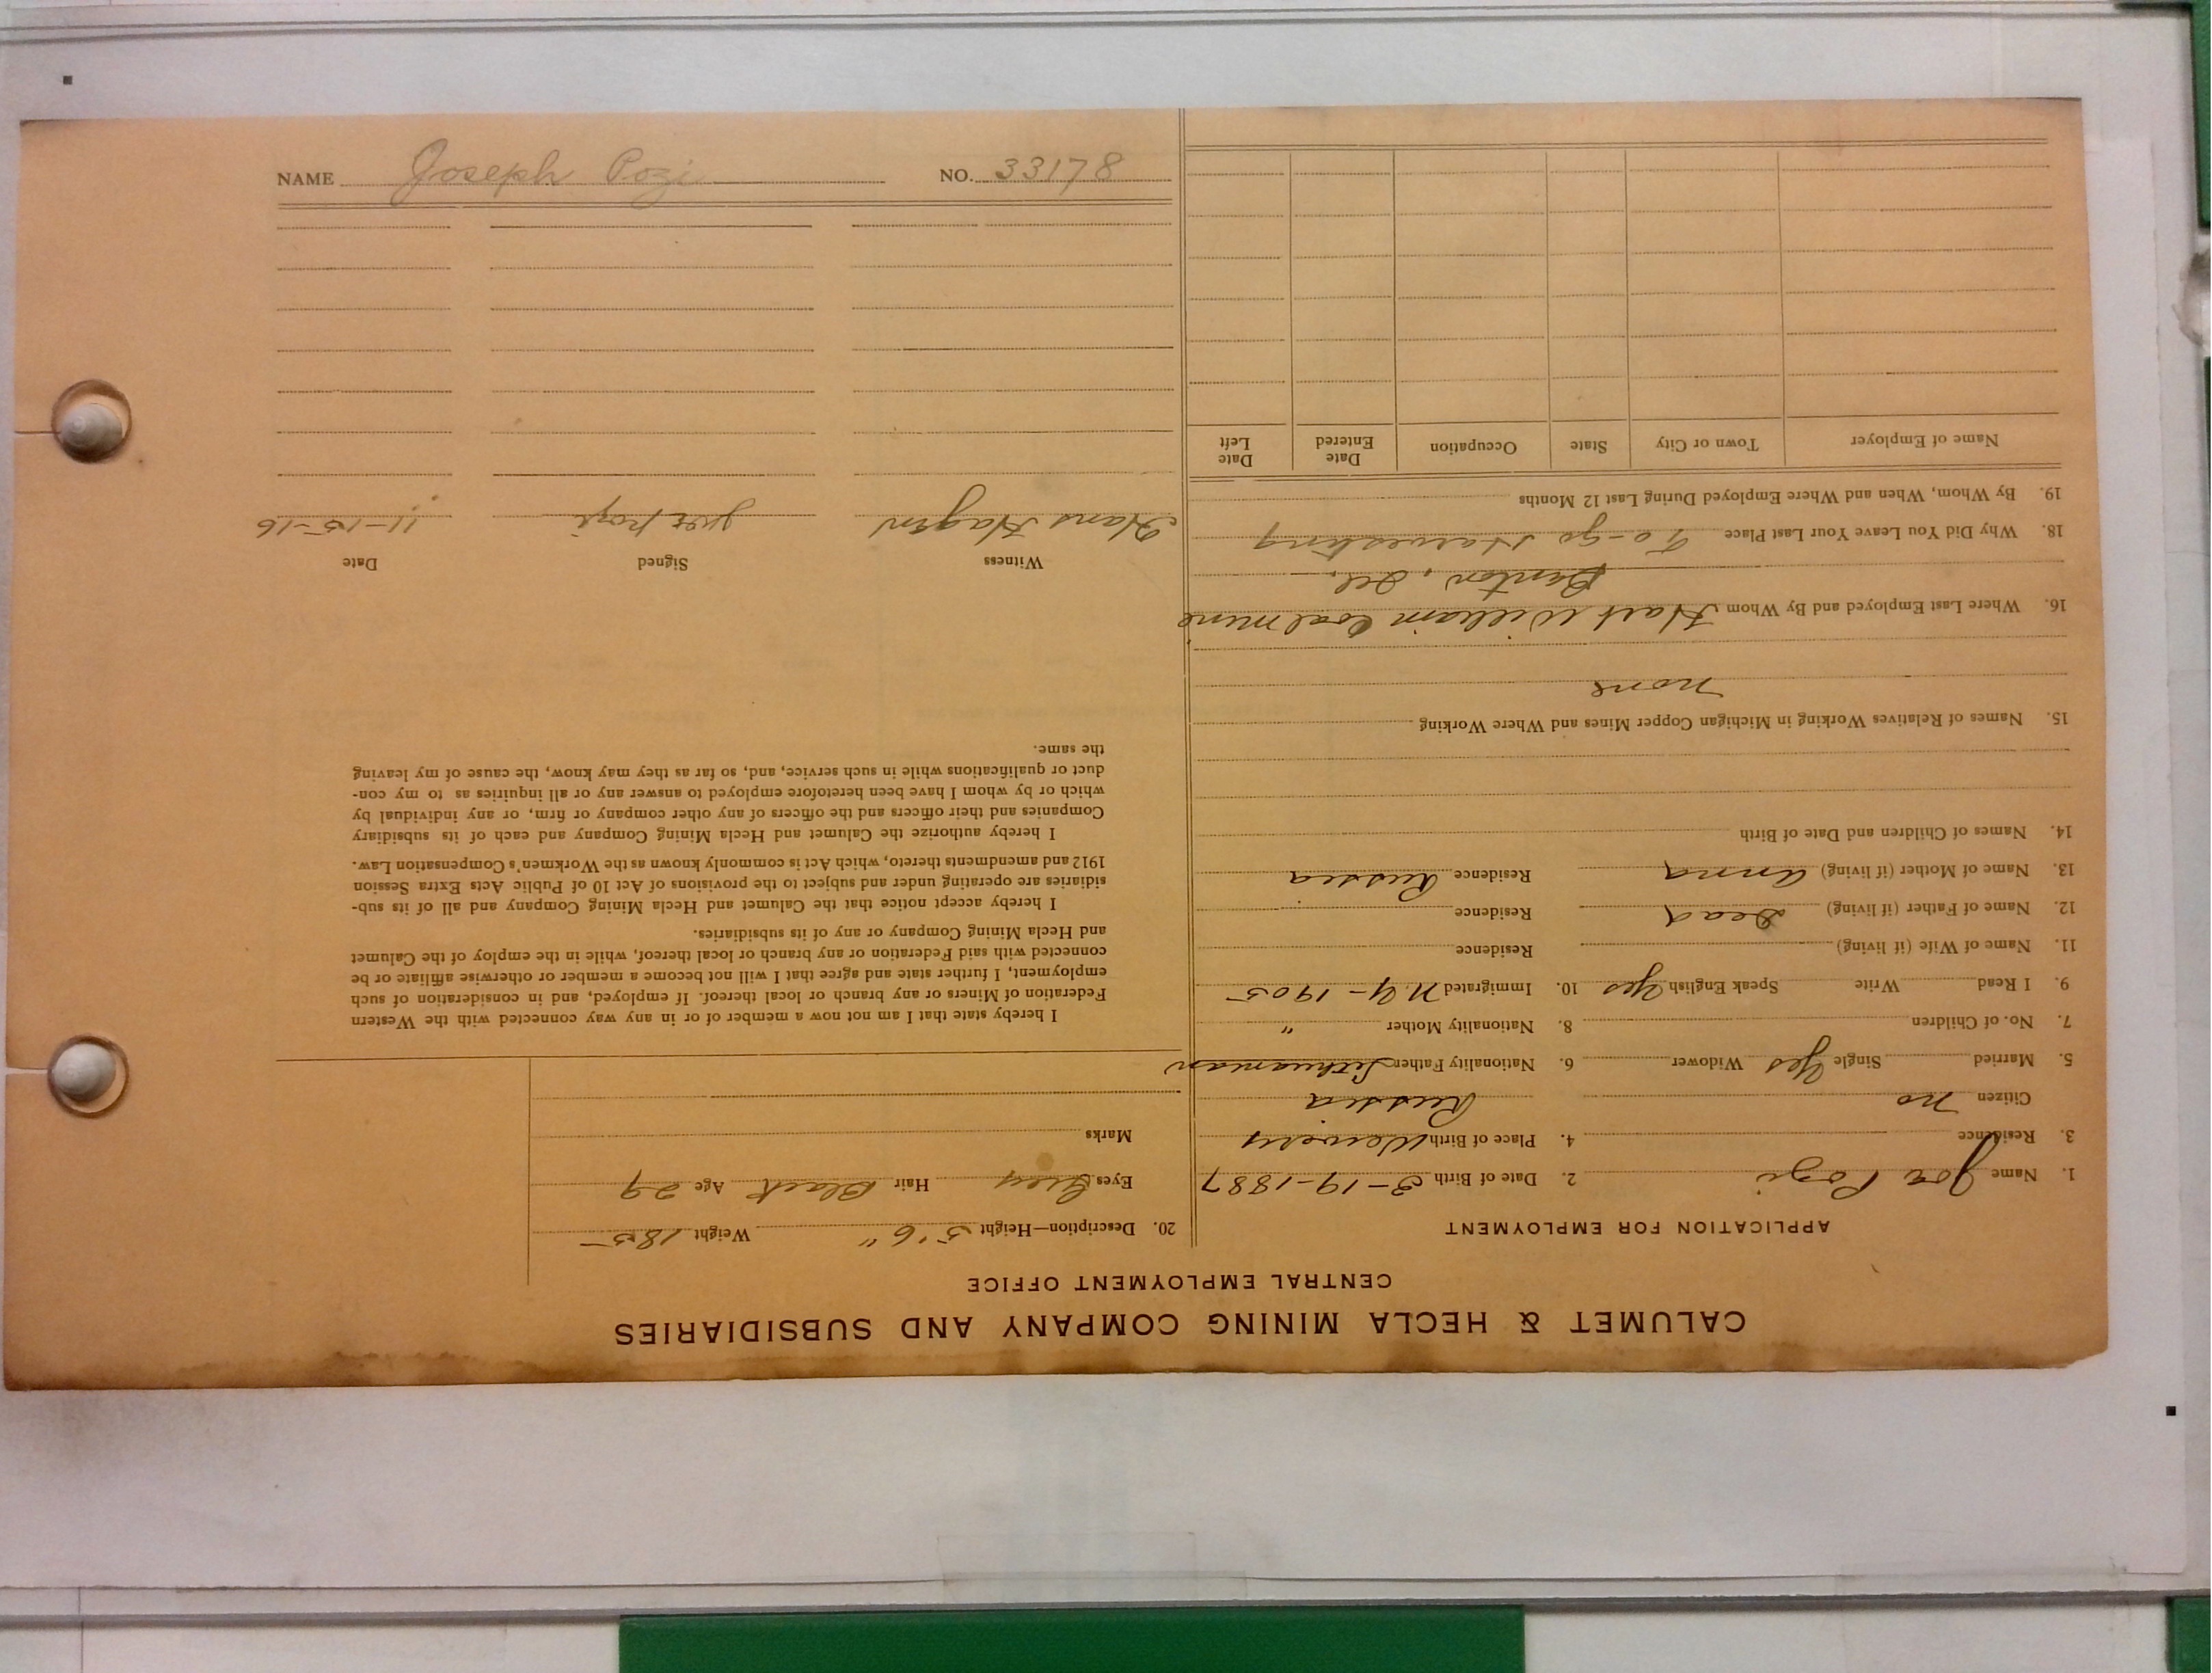 CALUMET & HECLA MINING COMPANY AND SUBSIDIARIES
CENTRAL EMPLOYMENT OFFICE
APPLICATION FOR EMPLOYMENT
1. Name Joe Pozi 2. Date of Birth 3-19-1887
3. Residence 4. Place of Birth
Citizen no Russia
5. Married Single Yes Widower 6. Nationality Father Lithuanian
7. No. of Children 8. Nationality Mother "
9. I Read Write Speak English Yes 10. Immigrated N.Y-1905
11. Name of Wife (if living) Residence
12. Name of Father (if living) Dead Residence
13. Name of Mother (if living) Anna Residence Russia
14. Names of Children and Date of Birth
15. Names of Relatives Working in Michigan Copper Mines and Where Working
none
16. Where Last Employed and By Whom Hart William Coal mine
Benton, Ill.
18. Why Did You Leave Your Last Place To-go Harvesting
19. By Whom, When and Where Employed During Last 12 Months
Name of Employer Town or City State Occupation Date Entered Date Left
20. Description—Height 5'6" Weight 185
Eyes Grey Hair Black Age 29
Marks
I hereby state that I am not now a member of or in any way connected with the Western
Federation of Miners or any branch or local thereof. If employed, and in consideration of such
employment, I further state and agree that I will not become a member or otherwise affiliate or be
connected with said Federation or any branch or local thereof, while in the employ of the Calumet
and Hecla Mining Company or any of its subsidiaries.
I hereby accept notice that the Calumet and Hecla Mining Company and all of its sub-
sidiaries are operating under and subject to the provisions of Act 10 of Public Acts Extra Session
1912 and amendments thereto, which Act is commonly known as the Workmen's Compensation Law.
I hereby authorize the Calumet and Hecla Mining Company and each of its subsidiary
Companies and their officers and the officers of any other company or firm, or any individual by
which or by whom I have been heretofore employed to answer any or all inquiries as to my con-
duct or qualifications while in such service, and, so far as they may know, the cause of my leaving
the same.
Witness Signed Date
Hans Hagen Joe Pozi 11-15-16
NAME Joseph Pozi NO. 33178